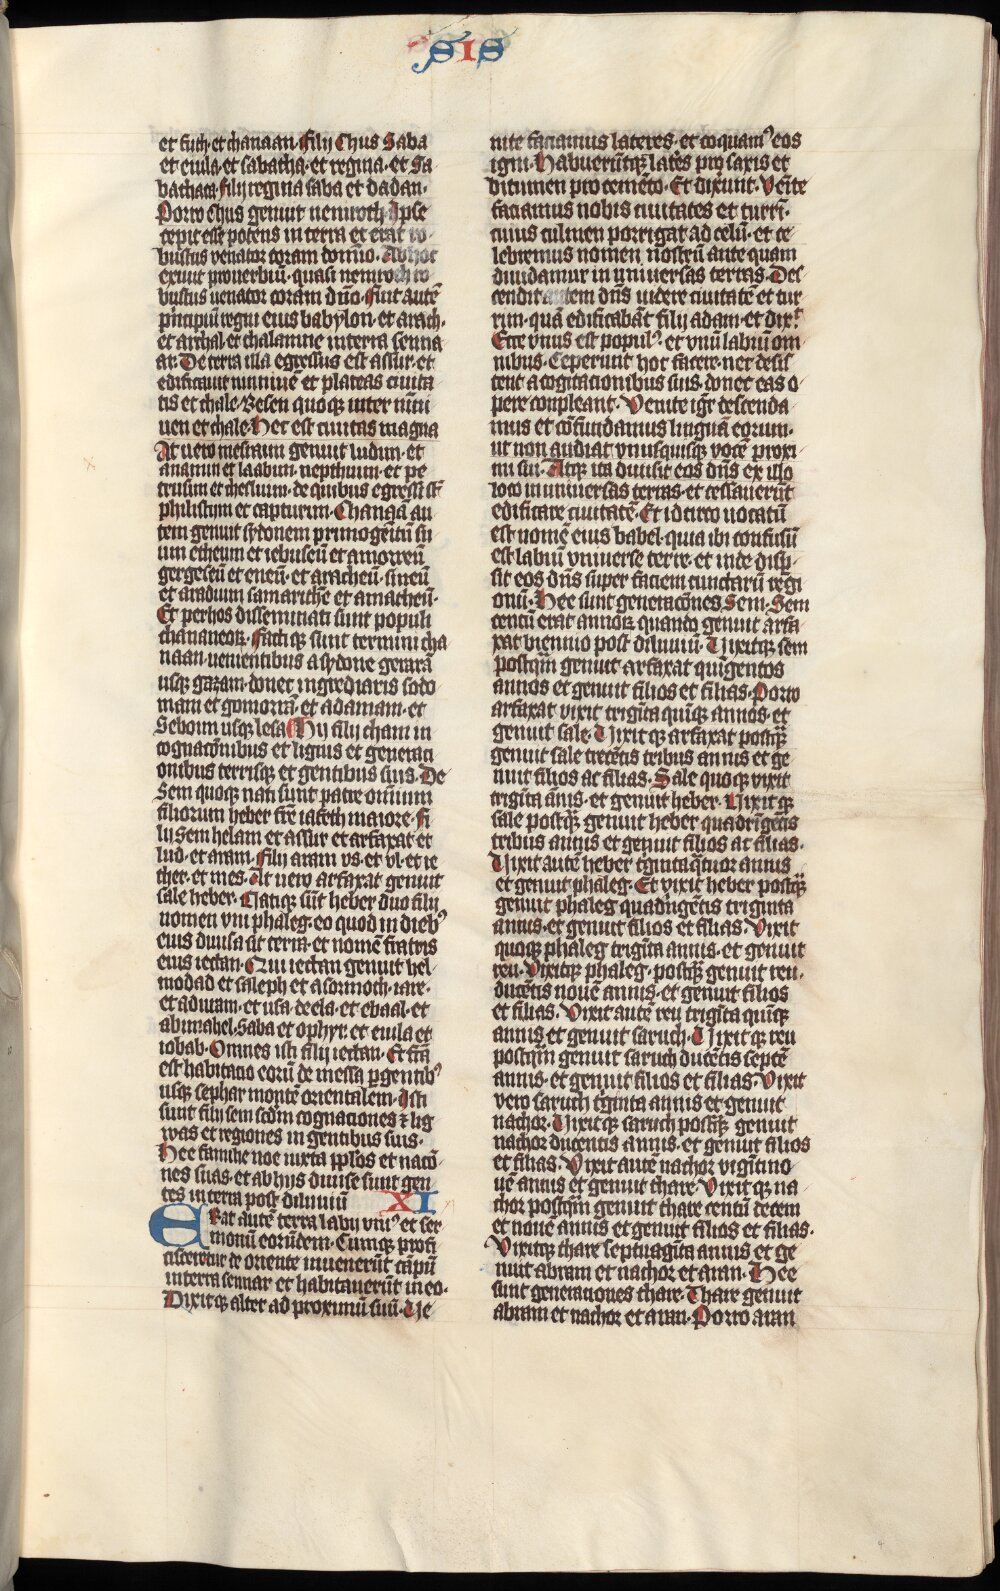 SIS
et futh et chanaan. Filij Chus Saba
et euila et sabatha et regma. et Sa
bathaca filij regma saba et dadan.
Porro chus genuit nemroth. Ipse
cepit esse potens in terra et erat ro
bustus venator coram domino. Ab hoc
exiuit prouerbiũ. quasi nemroch ro
bustus uenator coram dño. Fuit autẽ
principiũ regni eius babylon. et arach.
et archal et chalanne in terra senna
ar. De terra illa egressus est assur. et
edificauit niniuẽ et plateas ciuita
tis et chale. Resen quoqꝫ inter nini
uen et chale. Hec est ciuitas magna
At uero mesraim genuit ludim. et
anamim et laabim. nepthuim. et pe
trusim et chesluim. de quibus egressi sũt
philistijm et capturim. Chanaã au
tem genuit sydonem primogẽitũ su
um etheum et iebuseũ et amorreũ
gergeseũ et eueũ. et aracheũ. sineũ
et aradium samarithe et amatheũ.
Et per hos disseminati sunt populi
chananeorꝫ. Factiqꝫ sunt termini cha
naan. uenientibus a sydone gerarã
usqꝫ gazam. donec ingrediaris sodo
mam et gomorrã. et adamam. et
Seboim usqꝫ lesa. Hij filij cham in
cognatõnibus et liguis et generati
onibus terrisqꝫ et gentibus suis. De
Sem quoqꝫ nati sunt patre omniũ
filiorum heber fr̃e iafeth maiore. Fi
lij Sem helam et assur et arfaxat et
lud. et aram. filij aram vs. et vl. et ie
ther. et mes. At uero arfaxat genuit
sale heber. Natiqꝫ sũt heber duo filij
nomen vni phaleg. eo quod in dieb᷒
eius diuisa sit terra. et nomẽ fratris
eius iectan. Qui iectan genuit hel
modad et saleph et asormoth. iare.
et aduram. et usa. decla. et ebaal. et
abimahel. Saba et ophyr. et euila et
iobab. Omnes isti filij iectan. Et fc̃a
est habitacio eorũ de messa ꝑgentib᷒
usqꝫ sephar montẽ orientalem. Isti
sunt filij sem scd̃m cognaciones ⁊ lig
was et regiones in gentibus suis.
Hee familie noe iuxta pp̃los et nacõ
nes suas. et ab hijs diuise sunt gen
tes in terra post diluuiũ XI
Erat autẽ terra labij vni᷒ et ser
monũ eorũdem. Cumqꝫ profi
cisceretur de oriente inuenerũt cãpũ
in terra sennar et habitauerũt in eo.
Dixitqꝫ alter ad proximũ suũ. Ue
nite faciamus lateres. et coquam᷒ eos
igni. Habuerũtqꝫ lat̃es pro saxis et
bitumen pro cemẽto. Et dixerunt. Veĩte
faciamus nobis ciuitates et turrĩ.
cuius culmen porrigat ad celũ. et ce
lebremus nomen nostrũ ante quam
diuidamur in uniuersas terras. Des
cendit autem dñs uidere ciuitatẽ et tur
rim. quã edificabãt filij adam. et dix̃t
Ecce vnus est popul᷒. et vnũ labiũ om
nibus. Ceperunt hoc facere. nec desis
tent a cogitacionibus suis. donec eas o
pere conpleant. Venite igr̃ descenda
mus et cõfundamus linguã eorum.
ut non audiat vnusquisqꝫ vocẽ proxi
mi sui. Atqꝫ ita diuisit eos dñs ex illo
loco in uniuersas terras. et cessauerũt
edificare ciuitatẽ. Et idcirco uocatũ
est nomẽ eius babel. quia ibi confusũ
est labiũ vniuerse terre. et inde disp̃
sit eos dñs super faciem cunctarũ regi
onũ. Hee sunt generacõnes Sem. Sem
centũ erat annorꝫ quando genuit arfa
xat biennio post diluuiũ. Uixitqꝫ sem
postqm̃ genuit arfaxat quĩgentos
annos et genuit filios et filias. Porro
arfaxat vixit trigĩta quĩqꝫ annos. et
genuit sale. Uixitqꝫ arfaxat postqꝫ̃
genuit sale trecẽtis tribus annis et ge
nuit filios ac filias. Sale quoqꝫ vixit
trigĩta ãnis. et genuit heber. Uixitqꝫ
sale postqꝫ̃ genuit heber quadrĩgẽtis
tribus annis et genuit filios ac filias.
Uixit autẽ heber tginta q̃tuor annis
et genuit phaleg. Et vixit heber postqꝫ̃
genuit phaleg quadrigẽtis triginta
annis. et genuit filios et filias. Vixit
quoqꝫ phaleg trigĩta annis. et genuit
reu. Vixitqꝫ phaleg. postqꝫ̃ genuit reu.
ducẽtis nouẽ annis. et genuit filios
et filias. Vixit autẽ reu trigĩta quĩqꝫ
annis et genuit saruch. Uixitqꝫ reu
postqm̃ genuit saruch ducẽtis septẽ
annis. et genuit filios et filias. Vixit
vero saruch tginta annis et genuit
nachor. Uixitqꝫ saruch postqꝫ̃ genuit
nachor ducentis annis. et genuit filios
et filias. Vixit autẽ nachor vigĩtino
uẽ annis et genuit thare. Vixitqꝫ na
chor postqm̃ genuit thare centũ decem
et nouẽ annis et genuit filios et filias.
Vixitqꝫ thare septuagĩta annis et ge
nuit abram et nachor et aran. Hee
sunt generaciones thare. Thare genuit
abram et nachor et aran. Porro aran